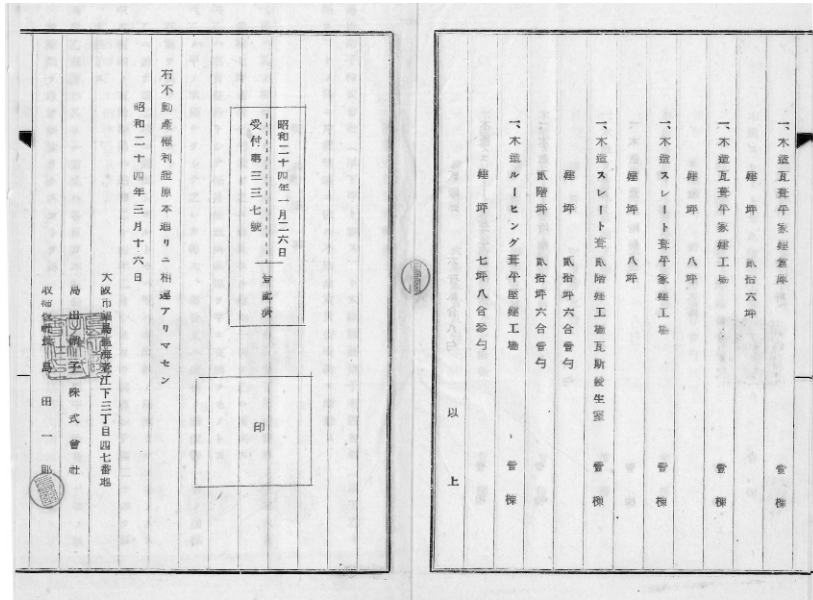 一、木造瓦葺平家建倉庫 壹棟
建坪 貳拾六坪
一、木造瓦葺平家建工場 壹棟
建坪 八坪
一、木造スレート葺平家建工場 壹棟
建坪 八坪
一、木造スレート葺貳階建工場瓦斯發生室 壹棟
建坪 貳拾坪六合壹勺
貳階坪 貳拾坪六合壹勺
一、木造ルーヒング葺平屋建工場 壹棟
建坪 七坪八合參勺
以上
昭和二十四年一月二六日
受付第三三七號
登記濟
印
右不動產權利證原本通リニ相違アリマセン
昭和二十四年三月十六日
大阪市福島區海老江下三丁目四七番地
島田硝子株式會社
取締役社長 島田一郎